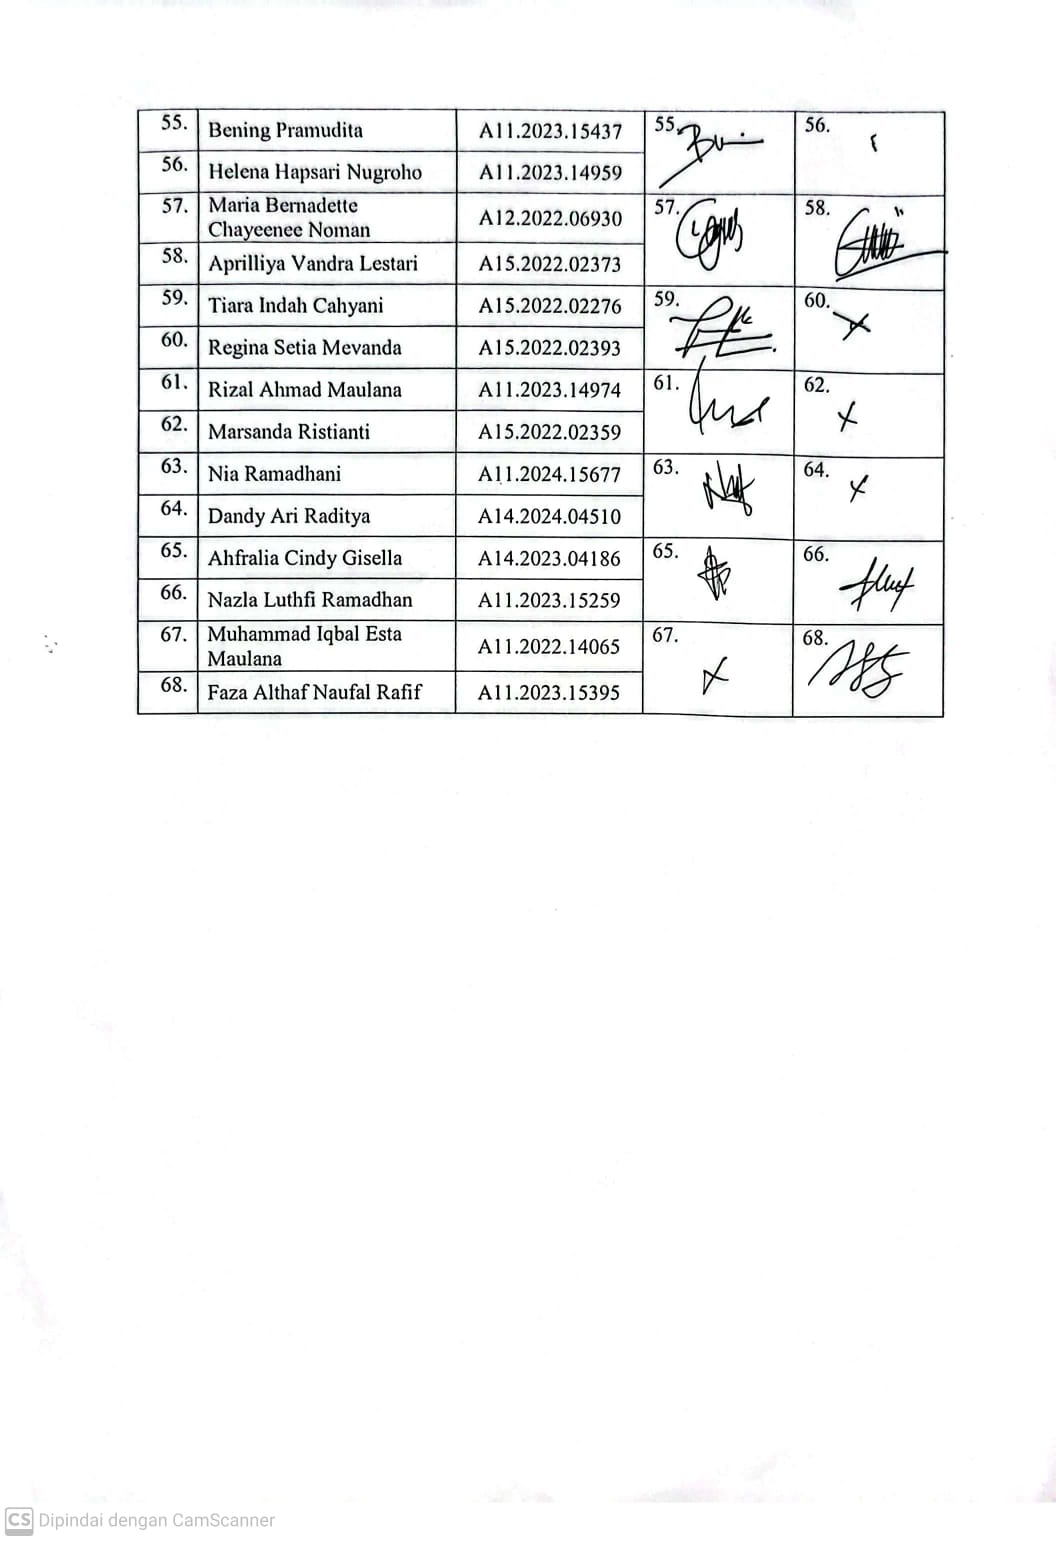 55. Bening Pramudita A11.2023.15437 55. 56.
56. Helena Hapsari Nugroho A11.2023.14959
57. Maria Bernadette
Chayeenee Noman A12.2022.06930 57. 58.
58. Aprilliya Vandra Lestari A15.2022.02373
59. Tiara Indah Cahyani A15.2022.02276 59. 60.
60. Regina Setia Mevanda A15.2022.02393
61. Rizal Ahmad Maulana A11.2023.14974 61. 62.
62. Marsanda Ristianti A15.2022.02359
63. Nia Ramadhani A11.2024.15677 63. 64.
64. Dandy Ari Raditya A14.2024.04510
65. Ahfralia Cindy Gisella A14.2023.04186 65. 66.
66. Nazla Luthfi Ramadhan A11.2023.15259
67. Muhammad Iqbal Esta
Maulana A11.2022.14065 67. 68.
68. Faza Althaf Naufal Rafif A11.2023.15395
CS Dipindai dengan CamScanner